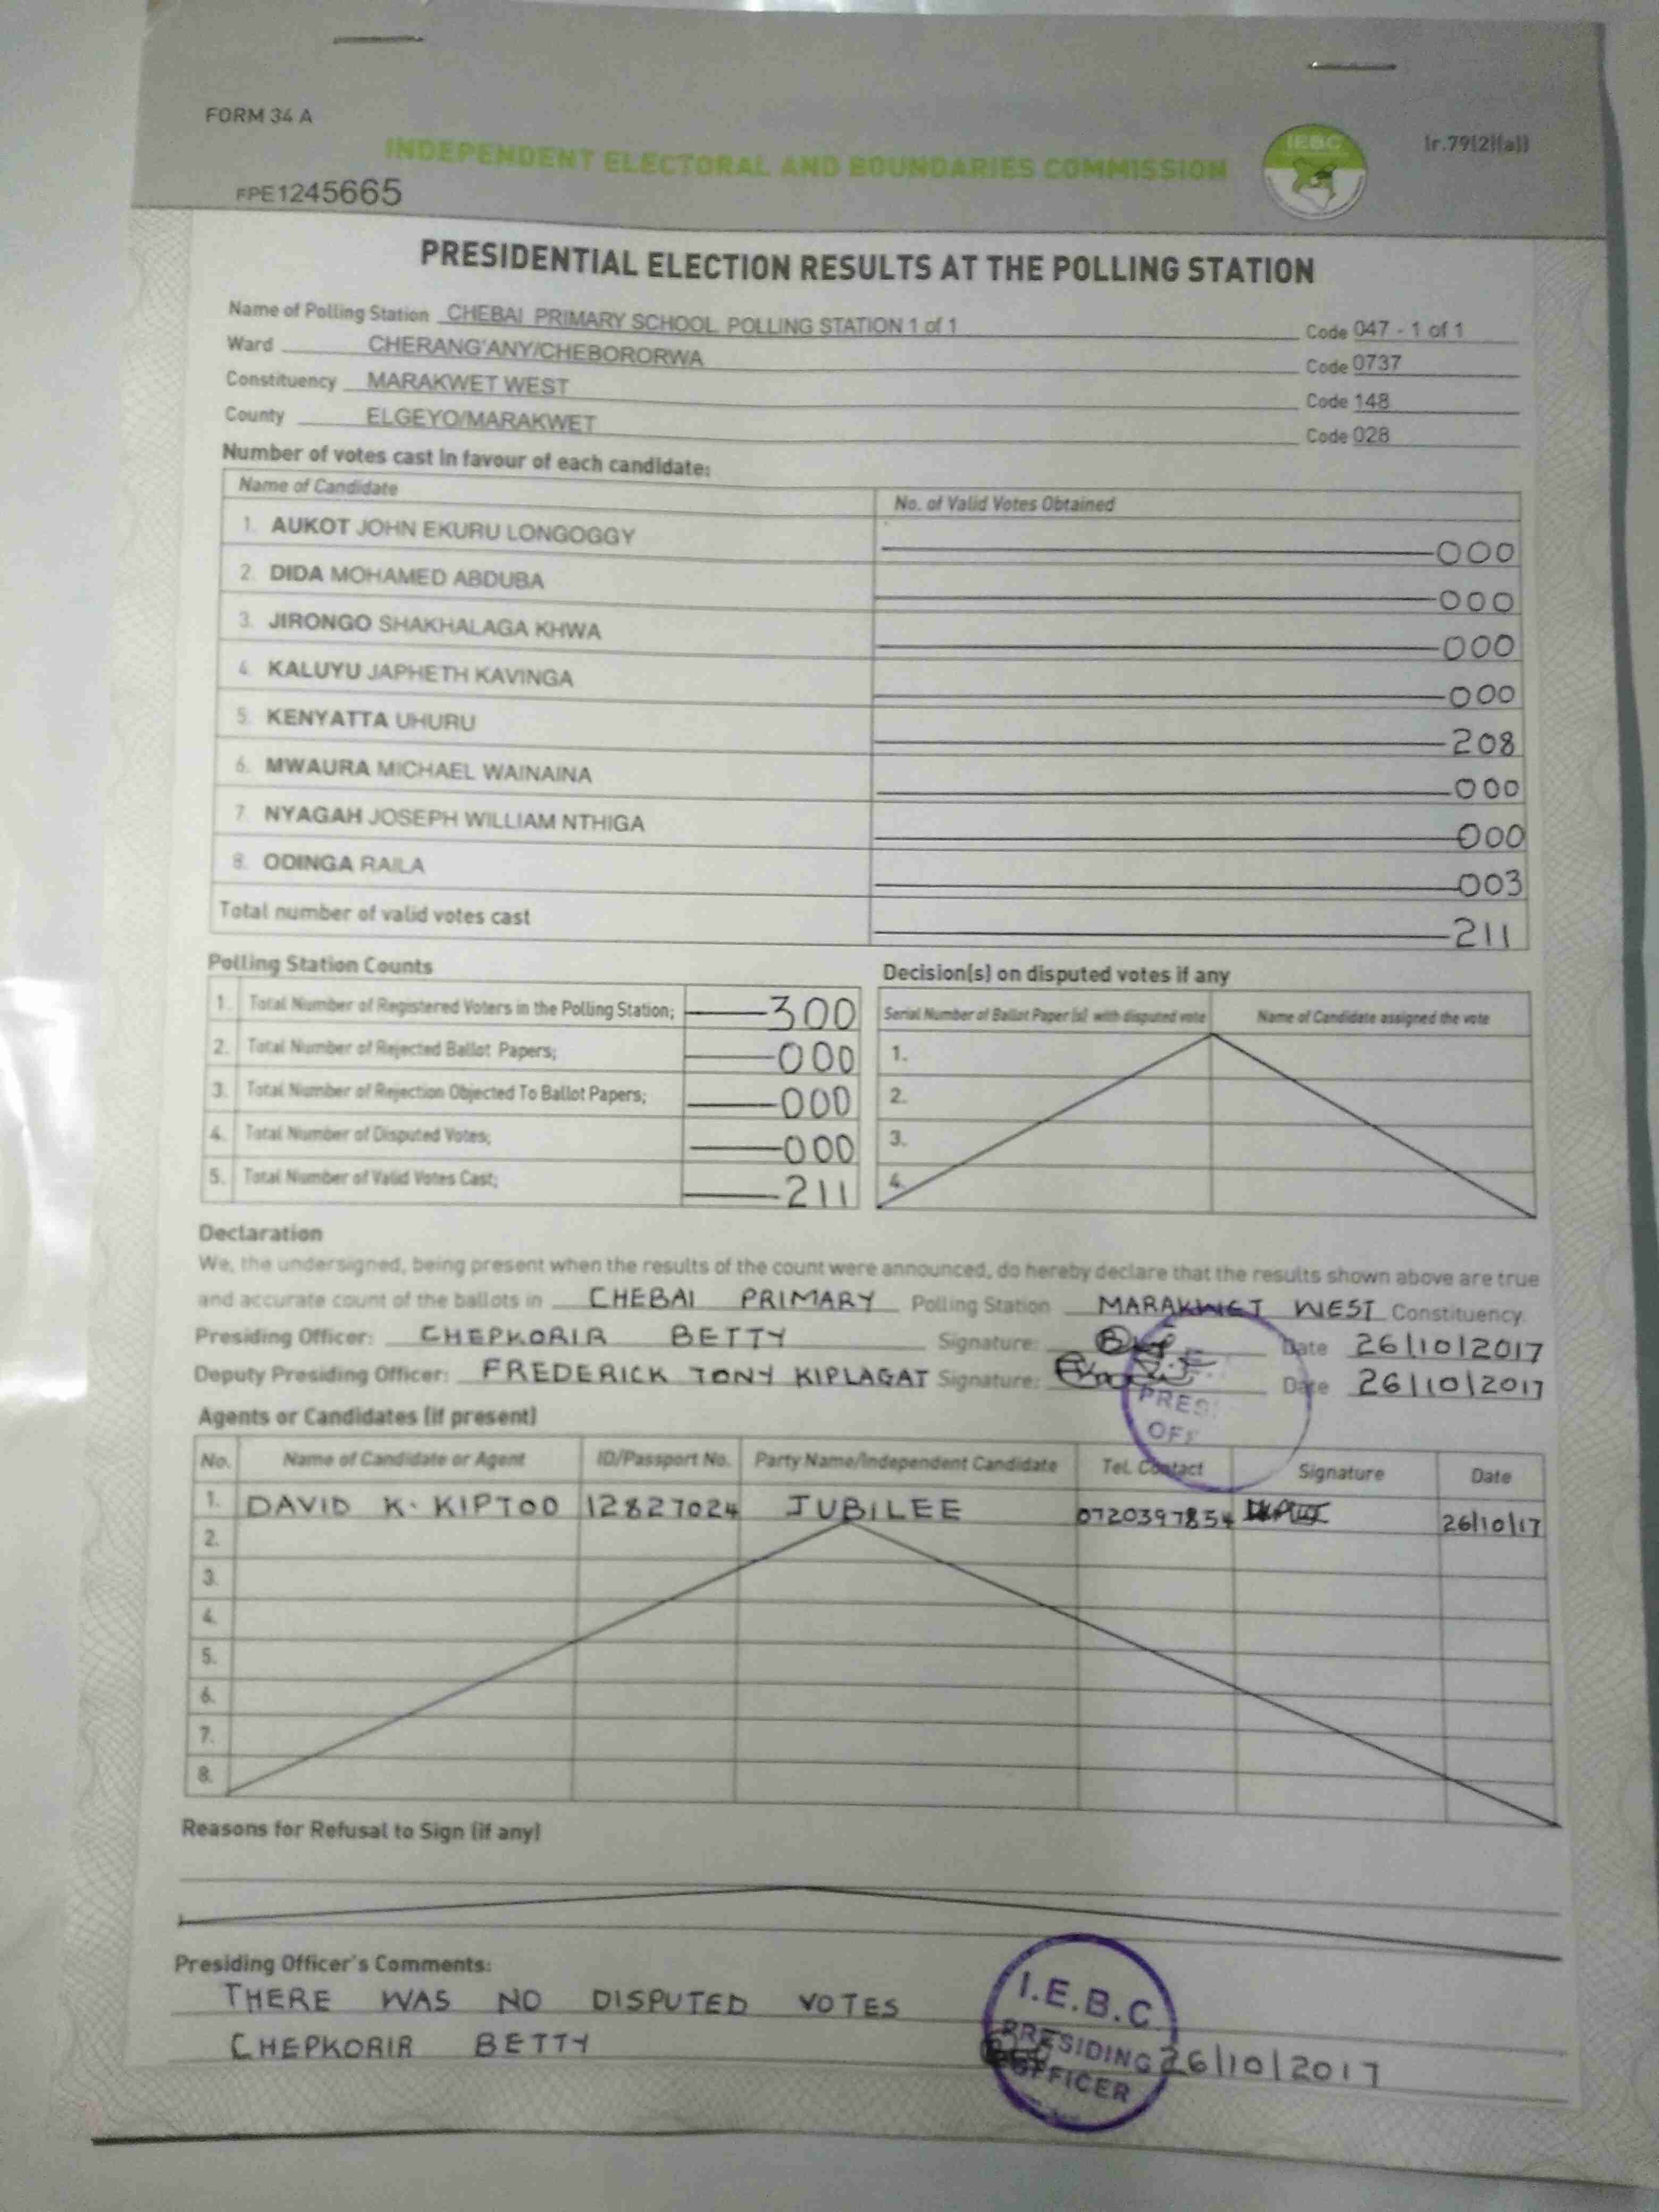 FORM 34 A
INDEPENDENT ELECTORAL AND BOUNDARIES COMMISSION
IEBC
(r.79(2)(a))
FPE1245665
PRESIDENTIAL ELECTION RESULTS AT THE POLLING STATION
Name of Polling Station CHEBAI PRIMARY SCHOOL POLLING STATION 1 of 1 Code 047 - 1 of 1
Ward CHERANG'ANY/CHEBORORWA Code 0737
Constituency MARAKWET WEST Code 148
County ELGEYO/MARAKWET Code 028
Number of votes cast in favour of each candidate:
Name of Candidate No. of Valid Votes Obtained
1. AUKOT JOHN EKURU LONGOGGY 000
2. DIDA MOHAMED ABDUBA 000
3. JIRONGO SHAKHALAGA KHWA 000
4. KALUYU JAPHETH KAVINGA 000
5. KENYATTA UHURU 208
6. MWAURA MICHAEL WAINAINA 000
7. NYAGAH JOSEPH WILLIAM NTHIGA 000
8. ODINGA RAILA 003
Total number of valid votes cast 211
Polling Station Counts
1. Total Number of Registered Voters in the Polling Station; 300
2. Total Number of Rejected Ballot Papers; 000
3. Total Number of Rejection Objected To Ballot Papers; 000
4. Total Number of Disputed Votes; 000
5. Total Number of Valid Votes Cast; 211
Decision(s) on disputed votes if any
Serial Number of Ballot Paper (s) with disputed vote Name of Candidate assigned the vote
1.
2.
3.
4.
Declaration
We, the undersigned, being present when the results of the count were announced, do hereby declare that the results shown above are true
and accurate count of the ballots in CHEBAI PRIMARY Polling Station MARAKWET WEST Constituency.
Presiding Officer: CHEPKORIR BETTY Signature: Date 26/10/2017
Deputy Presiding Officer: FREDERICK TONY KIPLAGAT Signature: Date 26/10/2017
Agents or Candidates (if present)
No. Name of Candidate or Agent ID/Passport No. Party Name/Independent Candidate Tel. Contact Signature Date
1. DAVID K. KIPTOO 12827024 JUBILEE 0720397854 26/10/17
2.
3.
4.
5.
6.
7.
8.
Reasons for Refusal to Sign (if any)
Presiding Officer's Comments:
THERE WAS NO DISPUTED VOTES
CHEPKORIR BETTY 26/10/2017
I.E.B.C
PRESIDING
OFFICER